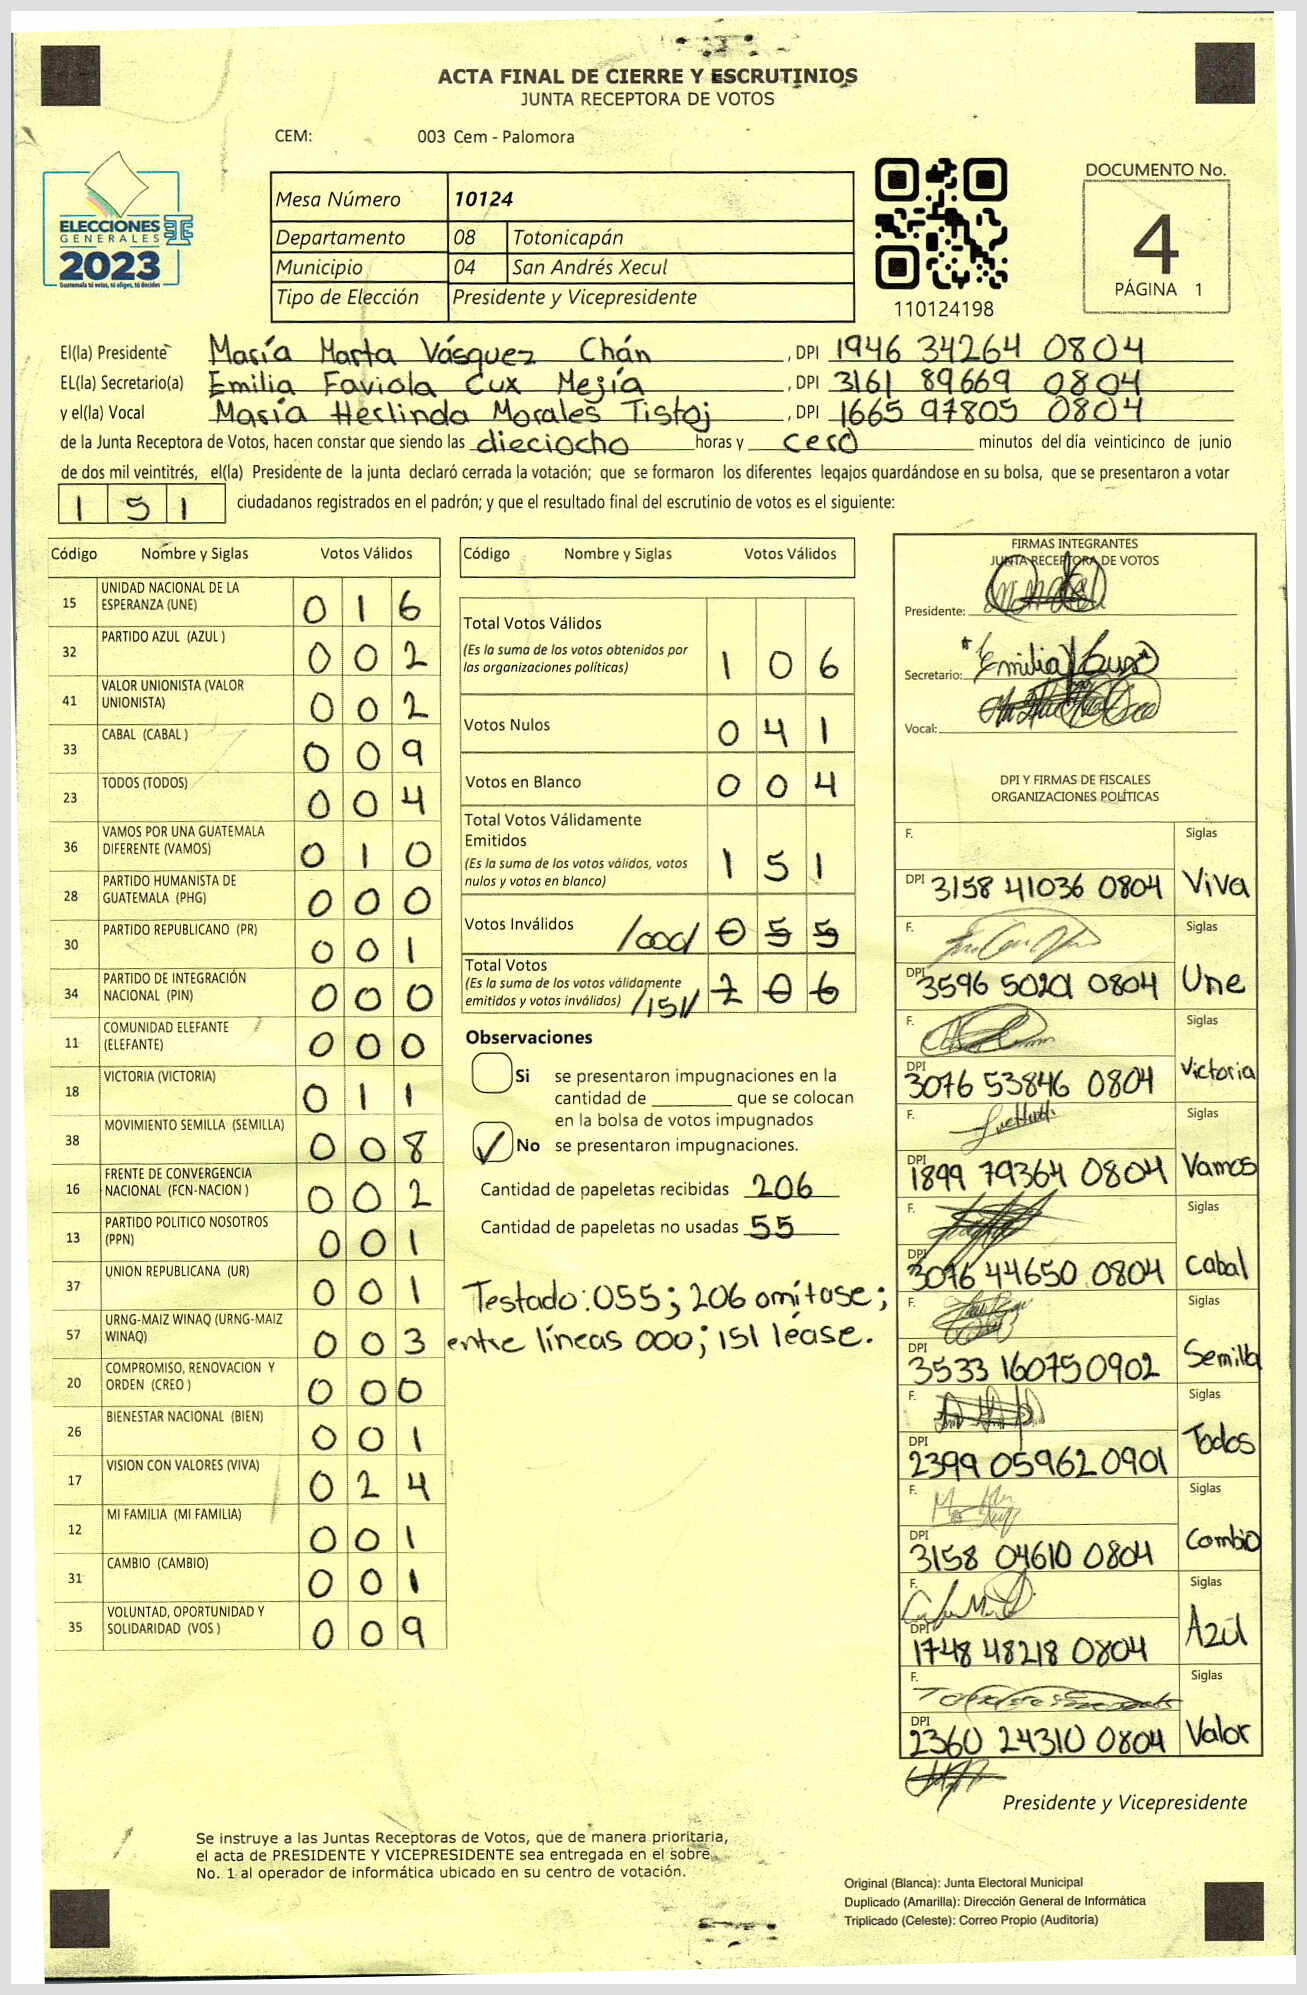 ACTA FINAL DE CIERRE Y ESCRUTINIOS
JUNTA RECEPTORA DE VOTOS
CEM: 003 Cem - Palomora
ELECCIONES
GENERALES
2023
Guatemala tú votas, tú eliges, tú decides
Mesa Número 10124
Departamento 08 Totonicapán
Municipio 04 San Andrés Xecul
Tipo de Elección Presidente y Vicepresidente
110124198
DOCUMENTO No.
4
PÁGINA 1
El(la) Presidente María Marta Vásquez Chán, DPI 1946 34264 0804
EL(la) Secretario(a) Emilia Faviola Cux Mejía, DPI 3161 89669 0804
y el(la) Vocal María Herlinda Morales Tistoj, DPI 1665 97805 0804
de la Junta Receptora de Votos, hacen constar que siendo las dieciocho horas y cero minutos del día veinticinco de junio
de dos mil veintitrés, el(la) Presidente de la junta declaró cerrada la votación; que se formaron los diferentes legajos guardándose en su bolsa, que se presentaron a votar
151 ciudadanos registrados en el padrón; y que el resultado final del escrutinio de votos es el siguiente:
Código Nombre y Siglas Votos Válidos
15 UNIDAD NACIONAL DE LA ESPERANZA (UNE) 016
32 PARTIDO AZUL (AZUL ) 002
41 VALOR UNIONISTA (VALOR UNIONISTA) 002
33 CABAL (CABAL ) 009
23 TODOS (TODOS) 004
36 VAMOS POR UNA GUATEMALA DIFERENTE (VAMOS) 010
28 PARTIDO HUMANISTA DE GUATEMALA (PHG) 000
30 PARTIDO REPUBLICANO (PR) 001
34 PARTIDO DE INTEGRACIÓN NACIONAL (PIN) 000
11 COMUNIDAD ELEFANTE (ELEFANTE) 000
18 VICTORIA (VICTORIA) 011
38 MOVIMIENTO SEMILLA (SEMILLA) 008
16 FRENTE DE CONVERGENCIA NACIONAL (FCN-NACION ) 002
13 PARTIDO POLITICO NOSOTROS (PPN) 001
37 UNION REPUBLICANA (UR) 001
57 URNG-MAIZ WINAQ (URNG-MAIZ WINAQ) 003
20 COMPROMISO, RENOVACION Y ORDEN (CREO ) 000
26 BIENESTAR NACIONAL (BIEN) 001
17 VISION CON VALORES (VIVA) 024
12 MI FAMILIA (MI FAMILIA) 001
31 CAMBIO (CAMBIO) 001
35 VOLUNTAD, OPORTUNIDAD Y SOLIDARIDAD (VOS ) 009
Código Nombre y Siglas Votos Válidos
Total Votos Válidos
(Es la suma de los votos obtenidos por
las organizaciones políticas) 106
Votos Nulos 041
Votos en Blanco 004
Total Votos Válidamente
Emitidos
(Es la suma de los votos válidos, votos
nulos y votos en blanco) 151
Votos Inválidos /000/ 055
Total Votos
(Es la suma de los votos válidamente
emitidos y votos inválidos) /151/ 206
Observaciones
Si se presentaron impugnaciones en la
cantidad de ________ que se colocan
en la bolsa de votos impugnados
No se presentaron impugnaciones.
Cantidad de papeletas recibidas 206
Cantidad de papeletas no usadas 55
Testado: 055; 206 omítase;
entre líneas 000; 151 léase.
FIRMAS INTEGRANTES
JUNTA RECEPTORA DE VOTOS
Presidente:
Secretario: Emilia Cux
Vocal:
DPI Y FIRMAS DE FISCALES
ORGANIZACIONES POLÍTICAS
F. Siglas
DPI 3158 41036 0804 Viva
F. Siglas
DPI 3596 50201 0804 Une
F. Siglas
DPI 3076 53846 0804 Victoria
F. Siglas
DPI 1899 79364 0804 Vamos
F. Siglas
DPI 3076 44650 0804 Cabal
F. Siglas
DPI 3533 16075 0902 Semilla
F. Siglas
DPI 2399 05962 0901 Todos
F. Siglas
DPI 3158 04610 0804 Cambio
F. Siglas
DPI 1748 48218 0804 Azul
F. Siglas
DPI 2360 24310 0804 Valor
Presidente y Vicepresidente
Se instruye a las Juntas Receptoras de Votos, que de manera prioritaria,
el acta de PRESIDENTE Y VICEPRESIDENTE sea entregada en el sobre
No. 1 al operador de informática ubicado en su centro de votación.
Original (Blanca): Junta Electoral Municipal
Duplicado (Amarilla): Dirección General de Informática
Triplicado (Celeste): Correo Propio (Auditoría)